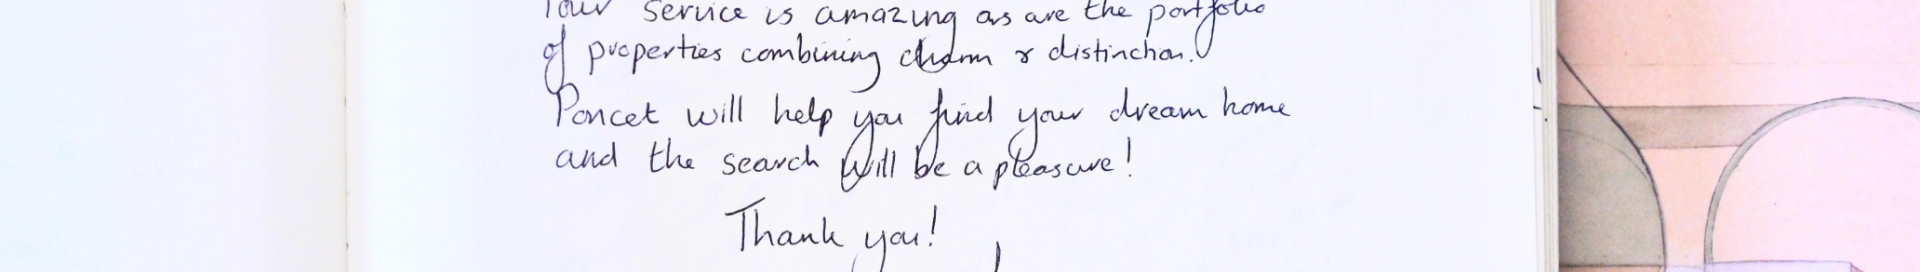 Your service is amazing as are the portfolio
of properties combining charm & distinction.
Poncet will help you find your dream home
and the search will be a pleasure!
Thank you!